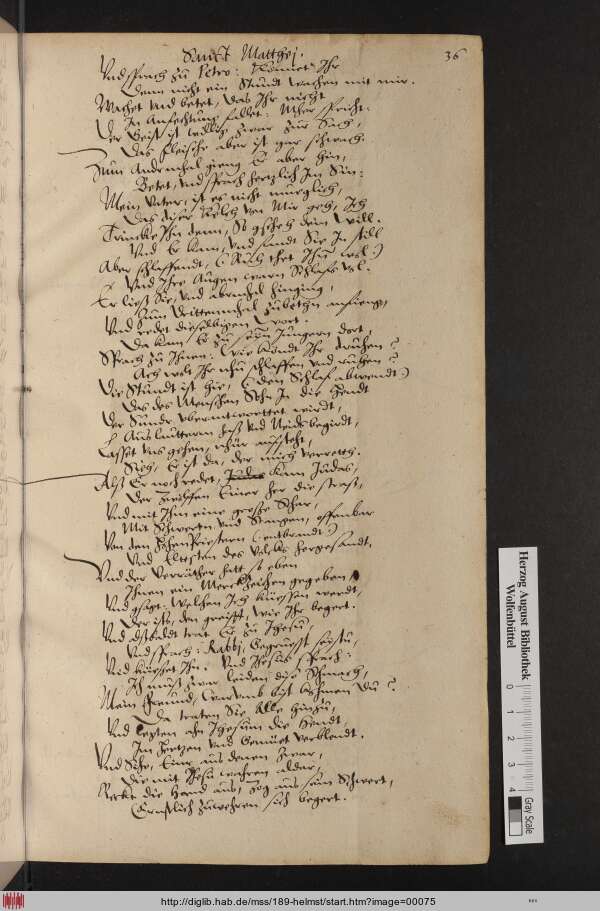 Sanct Matthej.
36
Vnd sprach zu Petro: Könnet Ihr
Denn nicht ein Stundt wachen mit mir.
Wachet vnd betet, das Ihr nicht
In Anfechtung fallet: Mher spricht.
Der Geist ist willig zwar zur Sach,
Das fleische aber ist gar schwach.
Zum Andermhal gieng Er aber hin,
Betet, vnd sprach hertzlich Im Sin:
Mein Vater, ist es nicht müeglich,
Das diser Kelch von Mir geh, Ich
Trincke Ihn denn, So gscheh dein will.
Vnd Er kam, vnd fandt Sie In still
Aber schlaffendt, (: Auch thet Ihn wol:)
Vnd Ihre Augen warn Schlafs vol.
Er ließ Sie, vnd abermhal hinging,
Zum Drittenmhal zubethn anfieng,
Vnd redet dieselbigen wort.
Da kam Er zu seinn Jüngern dort,
Sprach zu Ihnen: Wie köndt Ihr truhen?
Ach wolt Ihr nhu schlaffen vnd ruhen?
Die Stundt ist hie, (: den Schlaf abwendt:)
Das des Menschen Sohn In die Hendt
Der Sünder vberantworttet wirdt,
Auß lautterm haß vnd Neids begirdt,
Lasset vns gehen, nhur auffsteht,
Sieh, Er ist da, der mich verreth.
Alß Er noch redet, kam Judas,
Der Zwelffen Einer her die straß,
Vnd mit Ihm eine große Schar,
Mit Schwerten vnd Stangen, offenbar
Von den HohenPriestern (: entbrandt:)
Vnd Eltisten des Volcks hergesandt,
Vnd der Verräther hatt so eben
Ihnen ein Merckzeichen gegeben
Vnd gsagt: Welchen Ich küessen werdt,
Der ists, den greifft, wie Ihr begert.
Vnd alsbaldt trat Er zu Jhesu,
Vnd sprach: Rabbj, Gegrüesst seystu,
Vnd küesset Ihn. Vnd Jhesus sprach:
Ich muß zwar leiden dise Schmach,
Mein Freund, Warumb bist kohmen Du?
Da traten Sie Alle hinzu,
Vnd legten ahn Jhesum die Hendt,
Im Hertzen vnd Gemüet verblendt.
Vnd Sihe, Einr aus denen Zwar,
Die mit Jhesu wahren aldar,
Reckt die Hand aus, Zog aus sein Schwert,
Ernstlich zuwehren sich begert.
Herzog August Bibliothek
Wolfenbüttel
0 1 2 3 4
Gray Scale
http://diglib.hab.de/mss/189-helmst/start.htm?image=00075